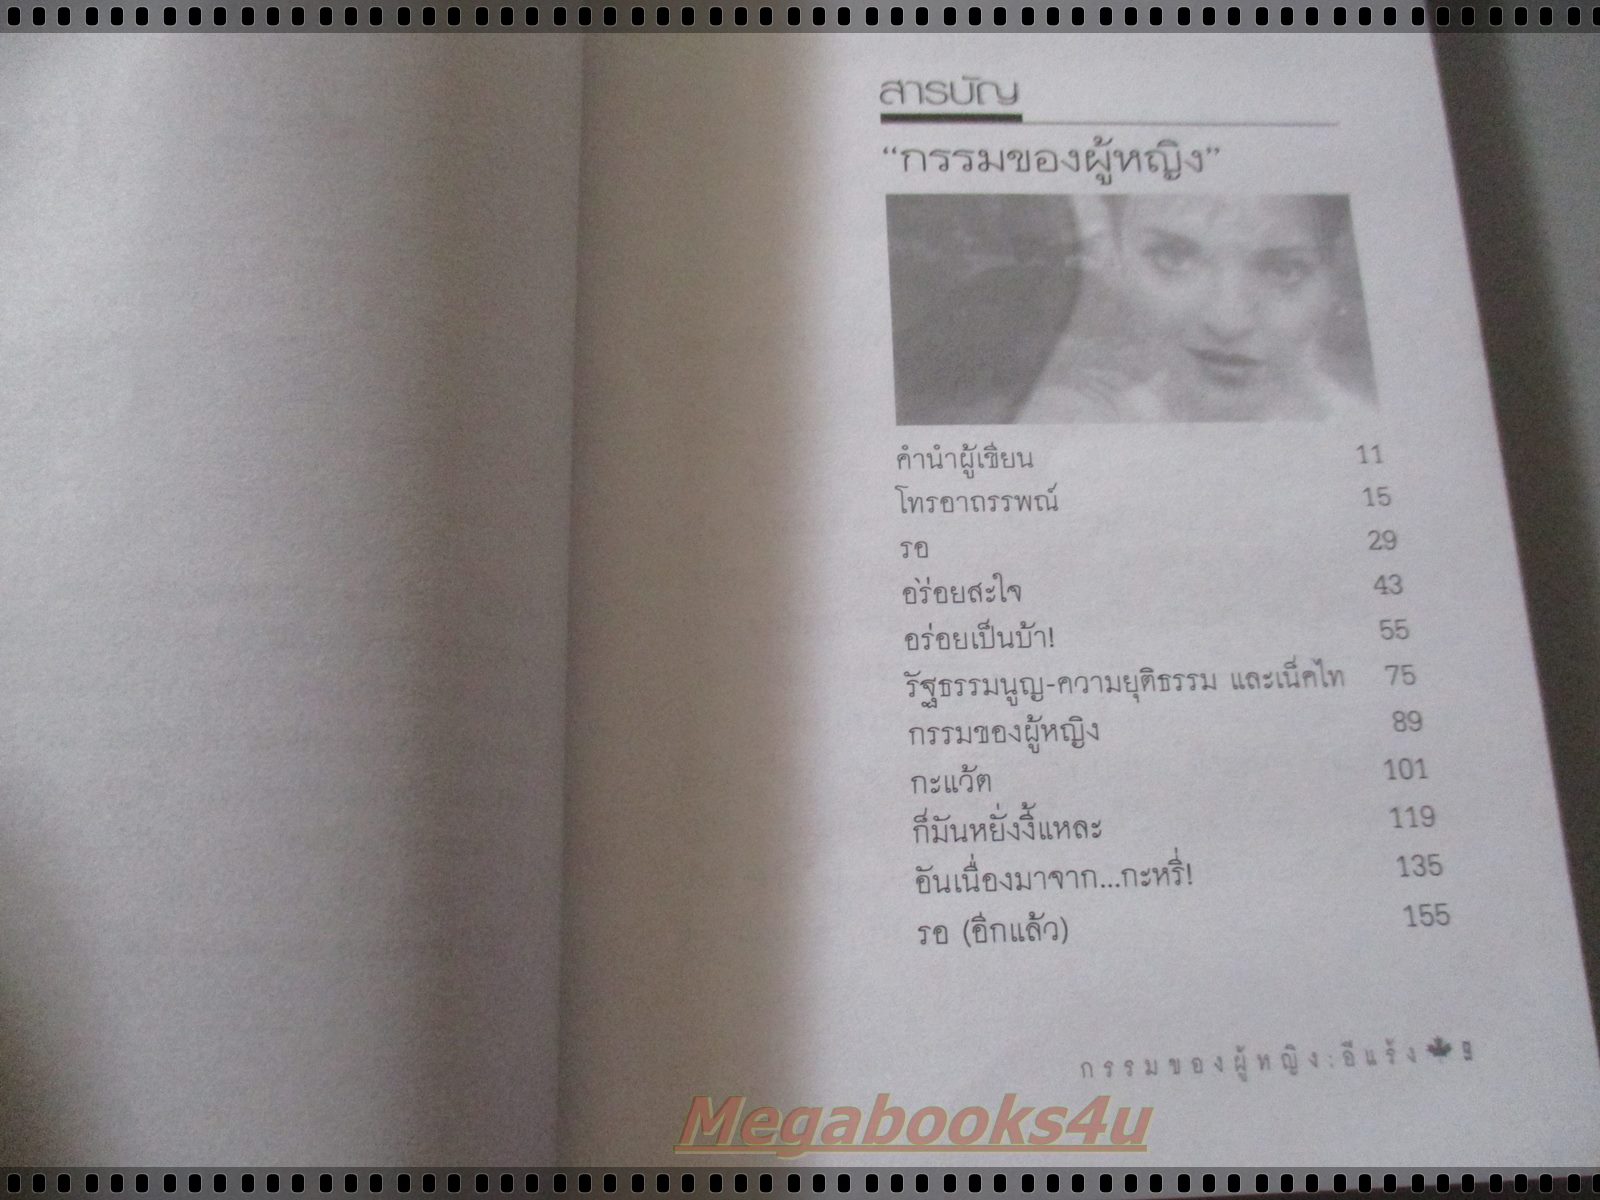 สารบัญ
“กรรมของผู้หญิง”
คำนำผู้เขียน 11
โทรอาถรรพณ์ 15
รอ 29
อร่อยสะใจ 43
อร่อยเป็นบ้า! 55
รัฐธรรมนูญ-ความยุติธรรม และเน็คไท 75
กรรมของผู้หญิง 89
กะแว้ต 101
ก็มันหยั่งงี้แหละ 119
อันเนื่องมาจาก...กะหรี่! 135
รอ (อีกแล้ว) 155
กรรมของผู้หญิง:อีแร้ง 9
Megabooks4u